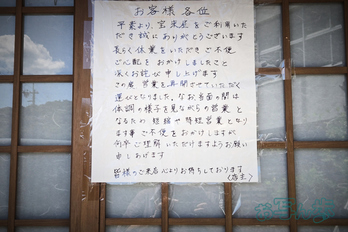 お客様 各位
平素より、宝来屋をご利用いただき誠にありがとうございます
長らく休業をいただきご不便
ご心配をおかけしましたこと
深くお詫び申し上げます
この度、営業を再開させていただく
運びとなりました。なお、当面の間は
体調の様子を見ながらの営業と
なるため 短縮や時短営業となり
ます事 ご不便をおかけしますが
何卒ご理解いただけますようお願い
申しあげます
皆様のご来店心よりお待ちしております
(店主)